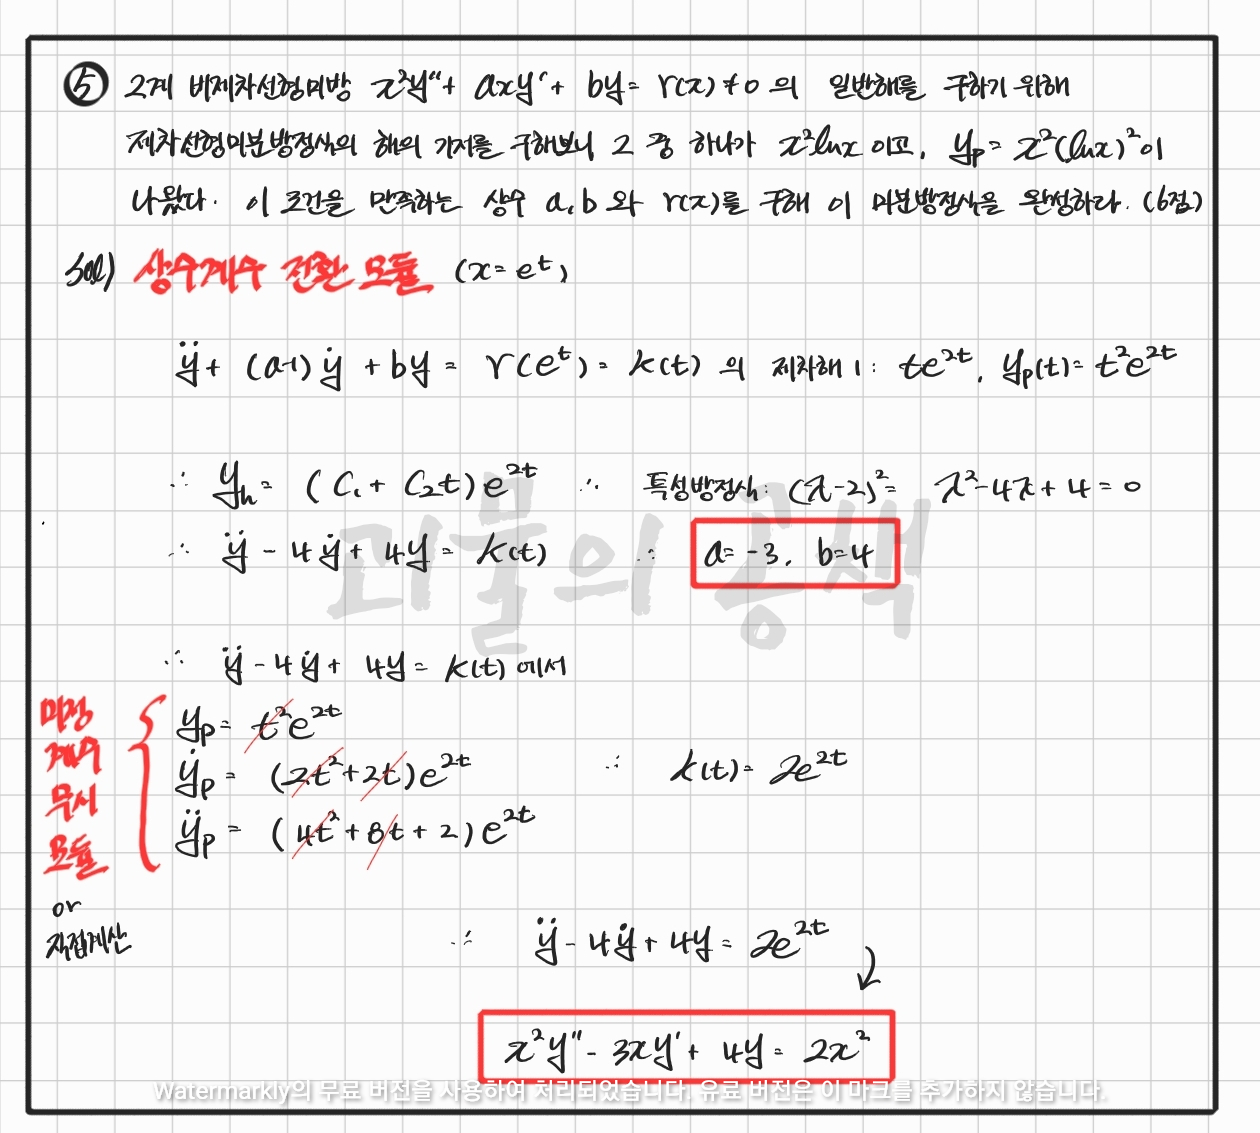 ⑤ 2계 비제차선형미방 x²y″+ axy′+ by = r(x) ≠ 0 의 일반해를 구하기 위해
제차선형미분방정식의 해의 기저를 구해보니 2 중 하나가 x²lnx 이고, yₚ = x²(lnx)²이
나왔다. 이 조건을 만족하는 상수 a, b 와 r(x)를 구해 이 미분방정식을 완성하라. (6점)
sol) 상수계수 전환 모듈 (x = eᵗ)
ÿ + (a-1)ẏ + by = r(eᵗ) = k(t) 의 제차해 1 : te²ᵗ, yₚ(t) = t²e²ᵗ
∴ yₕ = (C₁ + C₂t)e²ᵗ ∴ 특성방정식 : (λ-2)² = λ²-4λ+4 = 0
∴ ÿ - 4ẏ + 4y = k(t) ∴ a = -3, b = 4
괴물의 공색
∴ ÿ - 4ẏ + 4y = k(t) 에서
미정
계수
무시
모듈
yₚ = t²e²ᵗ
ẏₚ = (2t²+2t)e²ᵗ ∴ k(t) = 2e²ᵗ
ÿₚ = (4t²+8t+2)e²ᵗ
or
직접계산
∴ ÿ - 4ẏ + 4y = 2e²ᵗ
x²y″ - 3xy′ + 4y = 2x²
Watermarkly의 무료 버전을 사용하여 처리되었습니다. 유료 버전은 이 마크를 추가하지 않습니다.